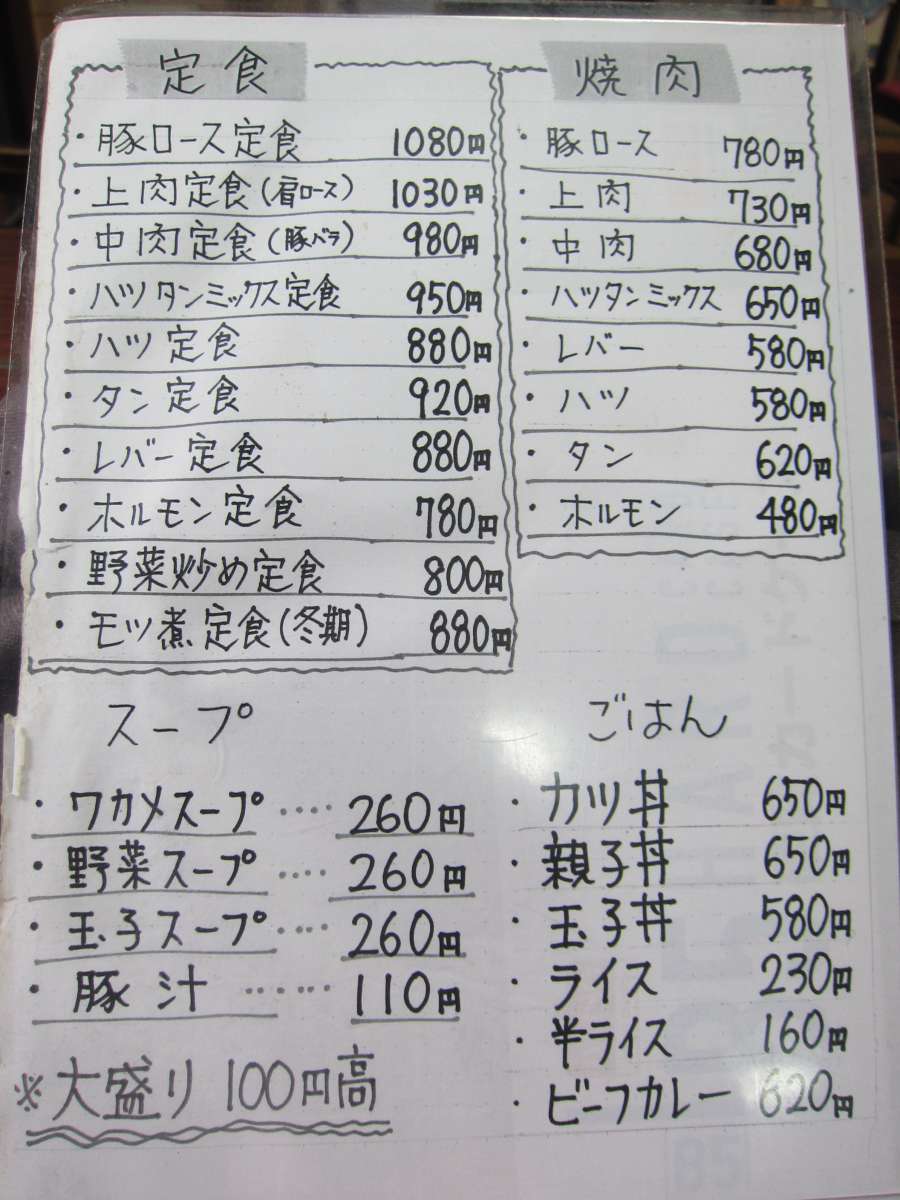 定食
・豚ロース定食 1080円
・上肉定食(肩ロース) 1030円
・中肉定食(豚バラ) 980円
・ハツタンミックス定食 950円
・ハツ定食 880円
・タン定食 920円
・レバー定食 880円
・ホルモン定食 780円
・野菜炒め定食 800円
・モツ煮定食(冬期) 880円
焼肉
・豚ロース 780円
・上肉 730円
・中肉 680円
・ハツタンミックス 650円
・レバー 580円
・ハツ 580円
・タン 620円
・ホルモン 480円
スープ
・ワカメスープ ‥‥ 260円
・野菜スープ ‥‥ 260円
・玉子スープ ‥‥ 260円
・豚汁 ‥‥‥ 110円
※大盛り100円高
ごはん
・カツ丼 650円
・親子丼 650円
・玉子丼 580円
・ライス 230円
・半ライス 160円
・ビーフカレー 620円